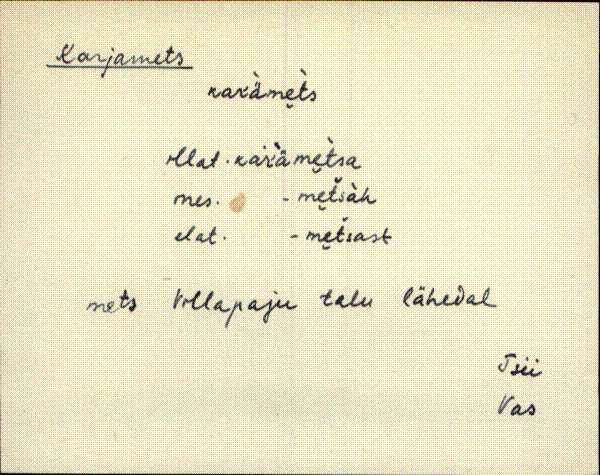 Karjamets
karämets
illat. karämetsa
ines. - metsah
elat. - metsast
mets Villapaju talu lähedal
Tsii
Vas